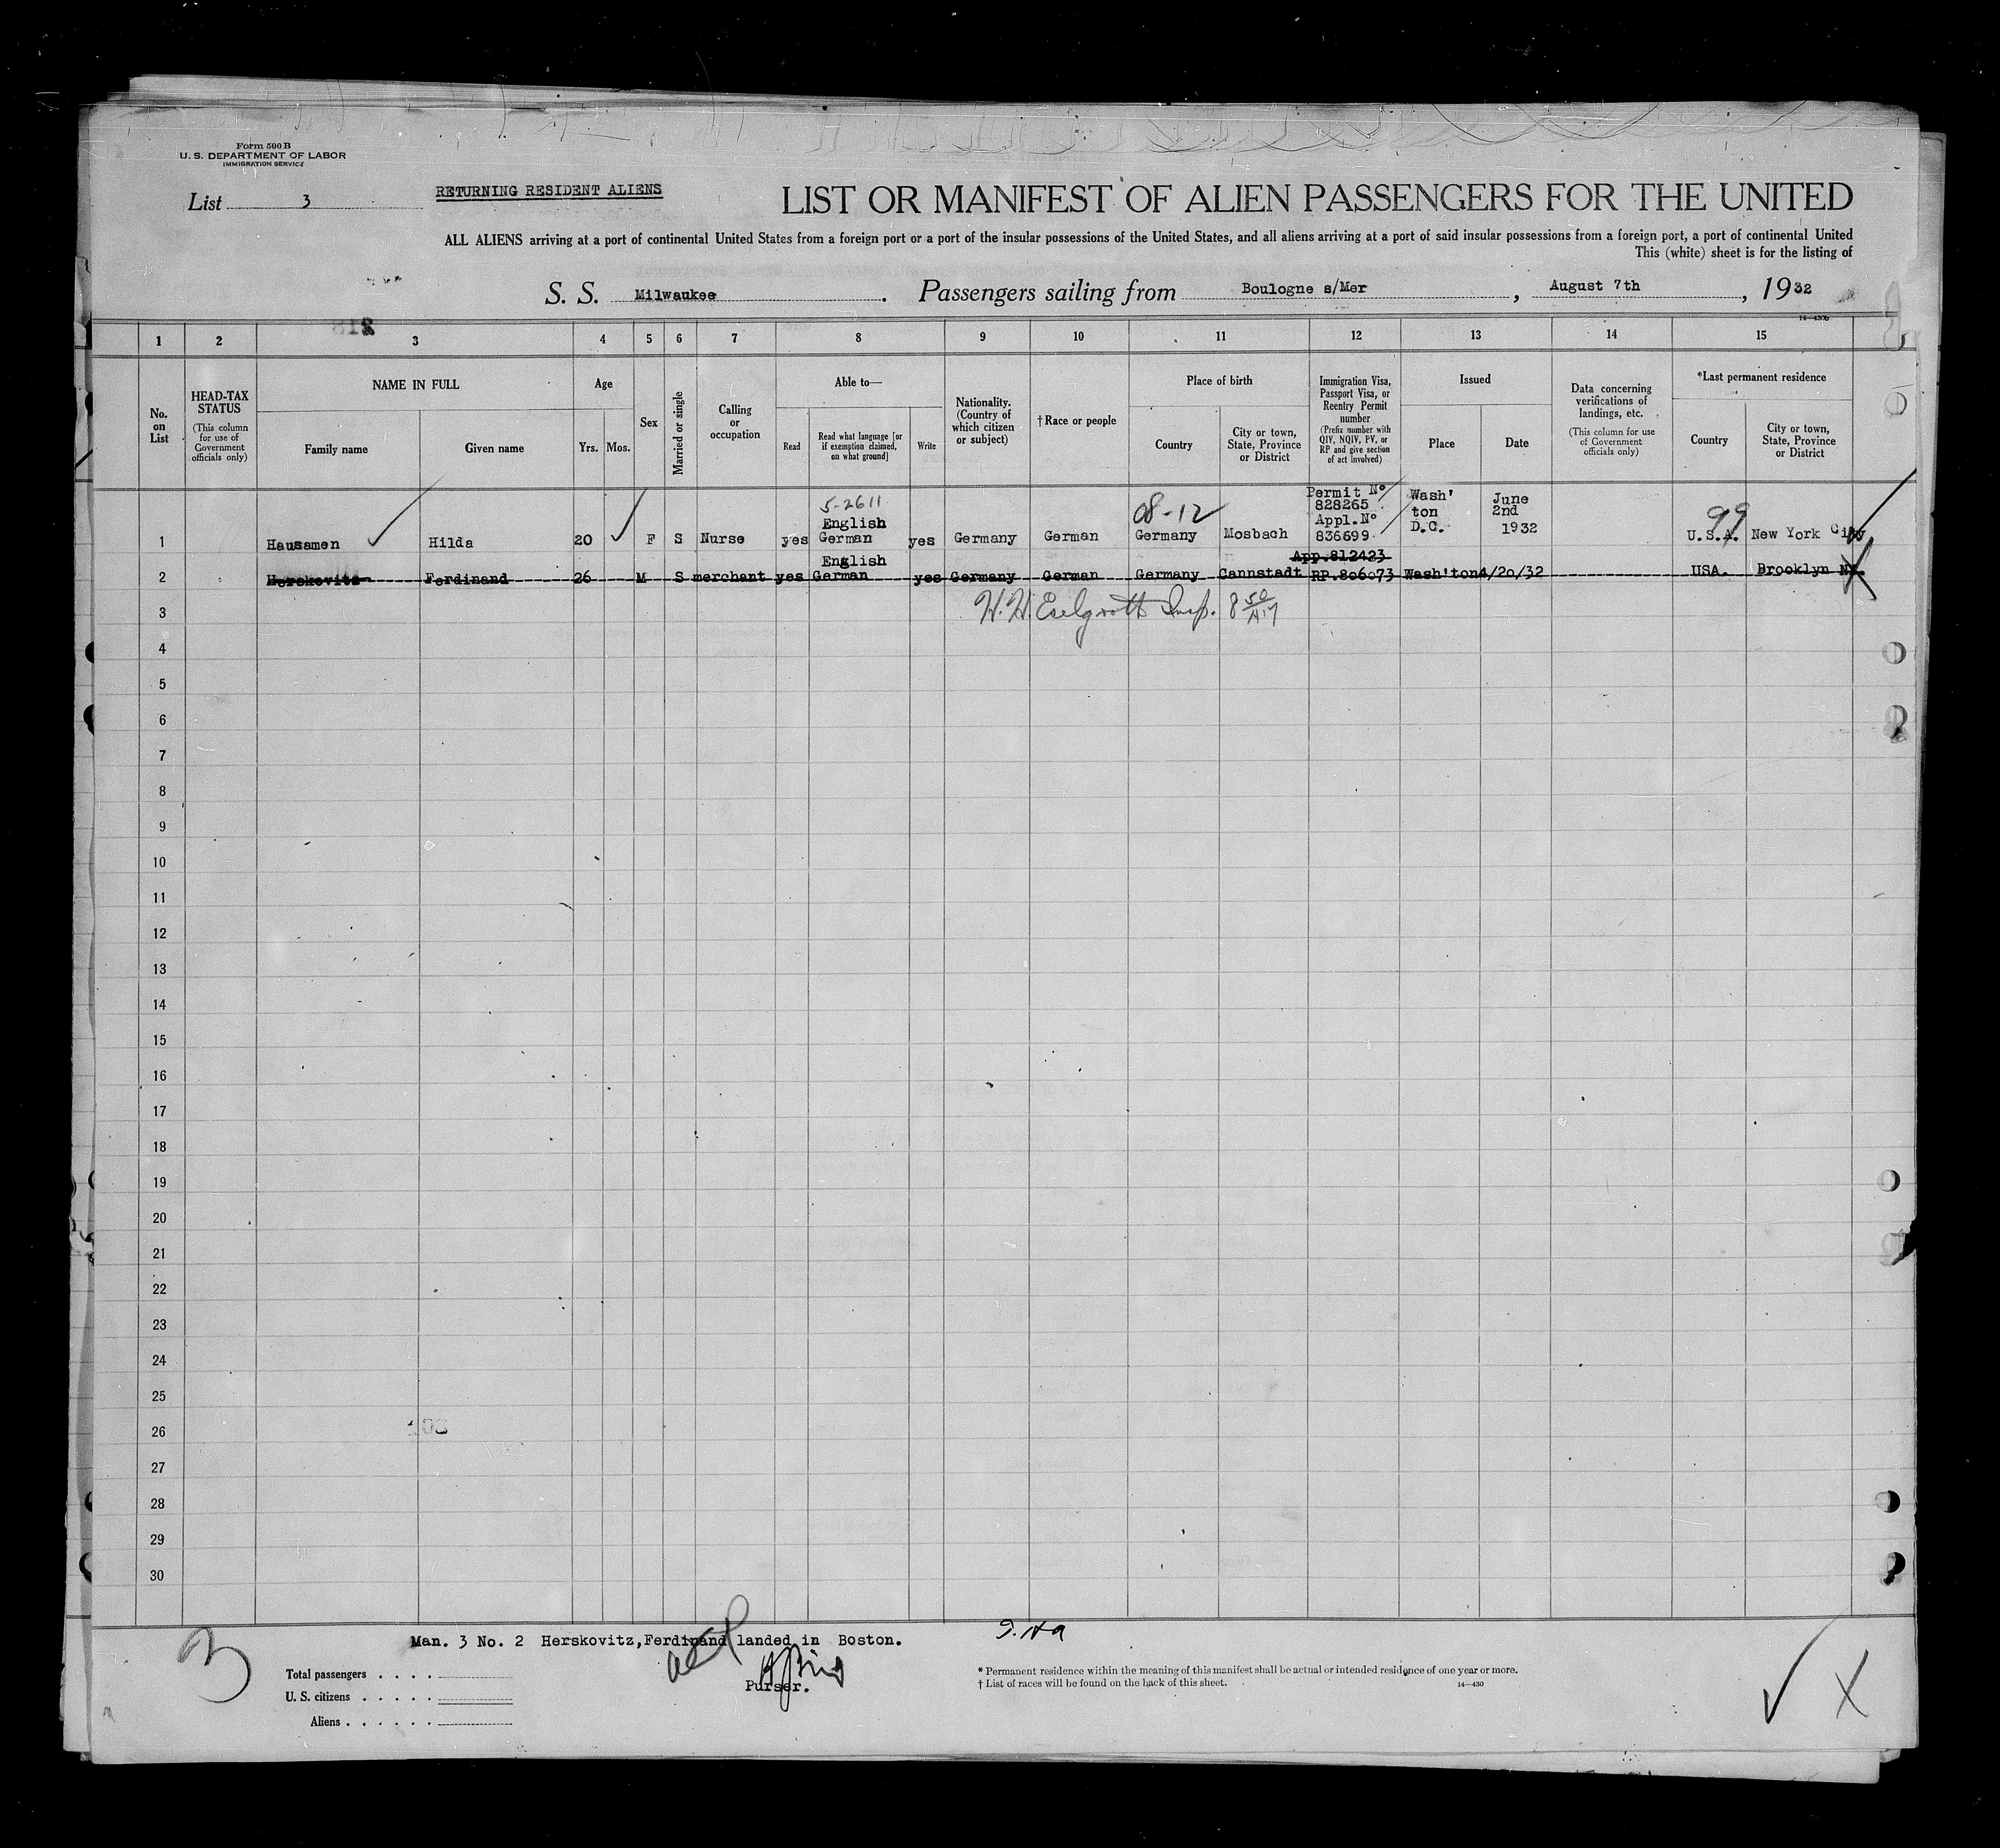 Form 500 B
U. S. DEPARTMENT OF LABOR
IMMIGRATION SERVICE
List 3
RETURNING RESIDENT ALIENS
LIST OR MANIFEST OF ALIEN PASSENGERS FOR THE UNITED
ALL ALIENS arriving at a port of continental United States from a foreign port or a port of the insular possessions of the United States, and all aliens arriving at a port of said insular possessions from a foreign port, a port of continental United
This (white) sheet is for the listing of
S. S. Milwaukee. Passengers sailing from Boulogne s/Mer, August 7th, 1932
14—430b
1 2 3 4 5 6 7 8 9 10 11 12 13 14 15
No. on List
HEAD-TAX STATUS
(This column for use of Government officials only)
NAME IN FULL
Family name
Given name
Age
Yrs.
Mos.
Sex
Married or single
Calling or occupation
Able to—
Read
Read what language [or if exemption claimed, on what ground]
Write
Nationality. (Country of which citizen or subject)
†Race or people
Place of birth
Country
City or town, State, Province or District
Immigration Visa, Passport Visa, or Reentry Permit number
(Prefix number with QIV, NQIV, PV, or RP and give section of act involved)
Issued
Place
Date
Data concerning verifications of landings, etc.
(This column for use of Government officials only)
*Last permanent residence
Country
City or town, State, Province or District
5-2611
08-12
99
1 Hausamen Hilda 20 F S Nurse yes English German yes Germany German Germany Mosbach Permit No 828265 Appl.No 836699 Wash'ton D.C. June 2nd 1932 U.S.A. New York City
2 Herskovitz Ferdinand 26 M S merchant yes English German yes Germany German Germany Cannstadt App.812423 RP.806073 Wash'ton 4/20/32 USA. Brooklyn NY.
3
4
5
6
7
8
9
10
11
12
13
14
15
16
17
18
19
20
21
22
23
24
25
26
27
28
29
30
3
Man. 3 No. 2 Herskovitz,Ferdinand landed in Boston.
Purser.
Total passengers
U. S. citizens
Aliens
* Permanent residence within the meaning of this manifest shall be actual or intended residence of one year or more.
† List of races will be found on the back of this sheet.
14—430